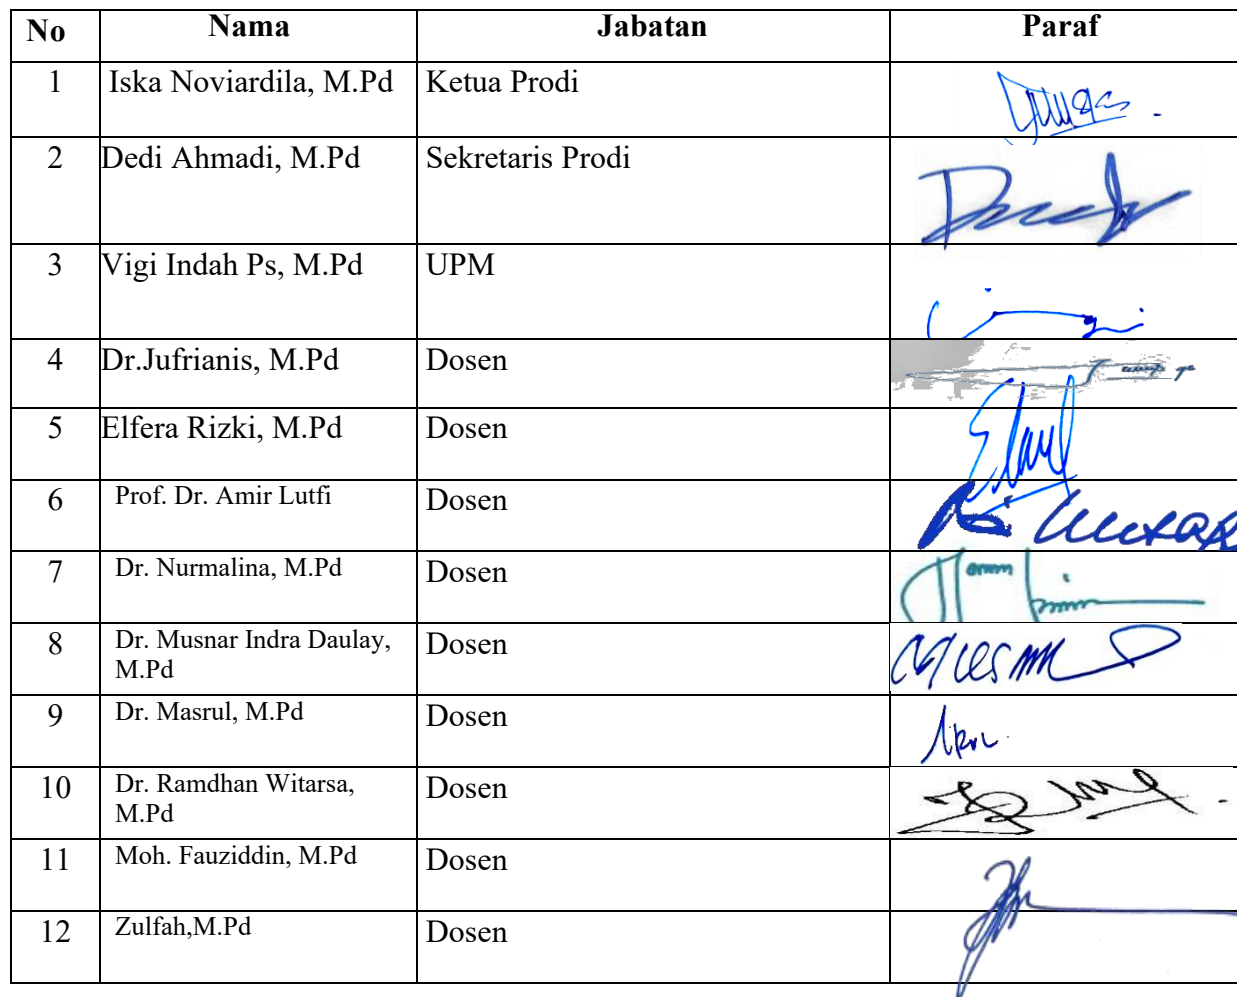 No Nama Jabatan Paraf
1 Iska Noviardila, M.Pd Ketua Prodi
2 Dedi Ahmadi, M.Pd Sekretaris Prodi
3 Vigi Indah Ps, M.Pd UPM
4 Dr.Jufrianis, M.Pd Dosen
5 Elfera Rizki, M.Pd Dosen
6 Prof. Dr. Amir Lutfi Dosen
7 Dr. Nurmalina, M.Pd Dosen
8 Dr. Musnar Indra Daulay, Dosen
M.Pd
9 Dr. Masrul, M.Pd Dosen
10 Dr. Ramdhan Witarsa, Dosen
M.Pd
11 Moh. Fauziddin, M.Pd Dosen
12 Zulfah,M.Pd Dosen